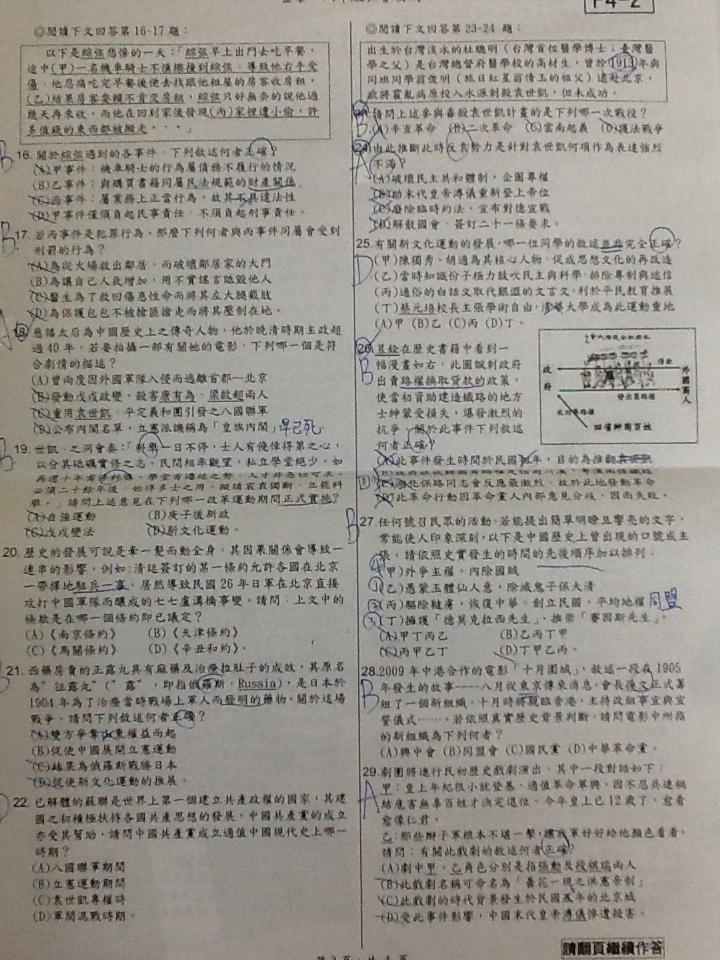 ◎閱讀下文回答第16~17題：
以下是綜弦悲慘的一天：「綜弦早上出門去吃早餐，
途中(甲)一名機車騎士不慎擦撞到綜弦，導致他右手受
傷，他忍痛吃完早餐後便去找跟他租屋的房客收房租，
(乙)結果房客耍賴不肯交房租，綜弦只好無奈的說他過
幾天再來收，而他在回到家後發現(丙)家裡遭小偷，許
多值錢的東西都被搬走
16. 關於綜弦遇到的各事件，下列敘述何者正確？
(A)甲事件：機車騎士的行為屬債務不履行的情況
(B)乙事件：與購買書籍同屬民法規範的財產關係
(C)丙事件：屬業務上正當行為，故其不具違法性
(D)甲事件僅須負起民事責任，不須負起刑事責任。
17. 若丙事件是犯罪行為，那麼下列何者與丙事件同屬會受到
刑罰的行為？
(A)為從火場救出鄰居，而破壞鄰居家的大門
(B)為讓自己人氣增加，用不實謠言詆毀他人
(C)醫生為了救回傷患性命而將其左大腿截肢
(D)為保護包包不被搶匪搶走而將其壓制在地。
18. 慈禧太后為中國歷史上之傳奇人物，他於晚清時期主政超
過40年，若要拍攝一部有關她的電影，下列哪一個是符
合劇情的描述？
(A)曾兩度因外國軍隊入侵而逃離首都—北京
(B)發動戊戌政變，殺害康有為、梁啟超兩人
(C)重用袁世凱，平定義和團引發之八國聯軍
(D)公布內閣名單，立憲派譏稱為「皇族內閣」早已死
19. 世凱、之洞會奏：「科舉一日不停，士人有僥倖得第之心，
以分其砥礪實修之志。民間相率觀望，私立學堂絕少。如
學。」請問上述意見在下列哪一改革運動期間正式實施？
(A)自強運動
(B)庚子後新政
(C)戊戌變法
(D)新文化運動。
20. 歷史的發展可說是牽一髮而動全身，其因果關係會導致一
連串的影響，例如：清廷簽訂的某一條約允許各國在北京
一帶擇地駐兵一事，居然導致民國26年日軍在北京直接
攻打中國軍隊而釀成的七七盧溝橋事變。請問：上文中的
條款是在哪一個條約即已議定？
(A)《南京條約》
(B)《天津條約》
(C)《馬關條約》
(D)《辛丑和約》。
21. 西藥房賣的正露丸具有麻藥及治療拉肚子的成效，其原名
為“征露丸”(“露”，即指俄羅斯，Russia)，是日本於
1904年為了治療當時戰場上軍人而發明的藥物。關於這場
戰爭，請問下列敘述何者正確？
(A)雙方爭奪山東權益而起
(B)促使中國展開立憲運動
(C)結果為俄羅斯戰勝日本
(D)促使新文化運動的推展。
22. 已解體的蘇聯是世界上第一個建立共產政權的國家，其建
國之初積極扶持各國共產思想的發展，中國共產黨的成立
亦受其幫助，請問中國共產黨成立適值中國現代史上哪一
時期？
(A)八國聯軍期間
(B)立憲運動期間
(C)袁世凱專權時
(D)軍閥混戰時期。
◎閱讀下文回答第23~24 題：
出生於台灣淡水的杜聰明(台灣首位醫學博士；臺灣醫
學之父)是台灣總督府醫學校的高材生，曾於1913年與
同班同學翁俊明(旅日紅星翁倩玉的祖父)遠赴北京，
欲將霍亂病原投入水源刺殺袁世凱，但未成功。
請問上述參與毒殺袁世凱計畫的是下列哪一次戰役？
(A)辛亥革命 (B)二次革命 (C)雲南起義 (D)護法戰爭
24. 由此推斷此時反袁勢力是針對袁世凱何項作為表達強烈
不滿？
(A)破壞民主共和體制，企圖專權
(B)助末代皇帝溥儀重新登上帝位
(C)廢除臨時約法，宣布對德宣戰
(D)解散國會，簽訂二十一條要求。
25. 有關新文化運動的發展，哪一位同學的敘述並非完全正確？
(甲)陳獨秀、胡適為其核心人物，促成思想文化的再改造
(乙)當時知識份子極力鼓吹民主與科學，排除專制與迷信
(丙)通俗的白話文取代艱澀的文言文，利於平民教育推展
(丁)蔡元培校長主張學術自由，清華大學成為此運動重地
(A)甲 (B)乙 (C)丙 (D)丁。
26. 昱銓在歷史書籍中看到一
幅漫畫如右，此圖諷刺政府
出賣路權換取貸款的政策，
使當初資助建造鐵路的地方
士紳蒙受損失，爆發激烈的
抗爭。關於此事件下列敘述
何者正確？
政府
借款
外國商人
四省紳商百姓
(D)此革命行動因革命黨人內部意見分歧，因而失敗。
27. 任何號召民眾的活動，若能提出簡單明瞭且響亮的文字，
常能使人印象深刻，以下是中國歷史上曾出現的口號或主
張，請依照史實發生的時間的先後順序加以排列：
(甲)外爭主權，內除國賊
(乙)憑蒙玉體仙人意，除滅鬼子保大清
(丙)驅除韃虜，恢復中華，創立民國，平均地權 同盟
(丁)擁護「德莫克拉西先生」、推崇「賽因斯先生」。
(A)甲丁丙乙
(B)乙丙丁甲
(C)丙甲乙丁
(D)丁甲乙丙。
28. 2009年中港合作的電影「十月圍城」，敘述一段在1905
年發生的故事——八月從東京傳來消息，會長孫文正式籌
組了一個新組織，十月時將親臨香港，主持政組事宜與宣
誓儀式……，若依照真實歷史背景判斷，請問電影中所指
的新組織為下列何者？
(A)興中會 (B)同盟會 (C)國民黨 (D)中華革命黨。
29. 劇團將進行民初歷史戲劇演出，其中一段對話如下：
甲：皇上年紀很小就登基，適值革命軍興，因不忍兵連禍
結危害無辜百姓才決定退位，今年皇上已12歲了，愈看
愈像仁君。
乙：那些辮子軍根本不堪一擊，讓我軍好好給他顏色看看。
請問：有關此戲劇的敘述何者正確？
(A)劇中甲、乙角色分別是指張勳及段祺瑞兩人
(B)此戲劇名稱可命名為「曇花一現之洪憲帝制」
(C)此戲劇的時代背景發生於民國五年的北京城
(D)受此事件影響，中國末代皇帝溥儀慘遭殺害。
請翻頁繼續作答